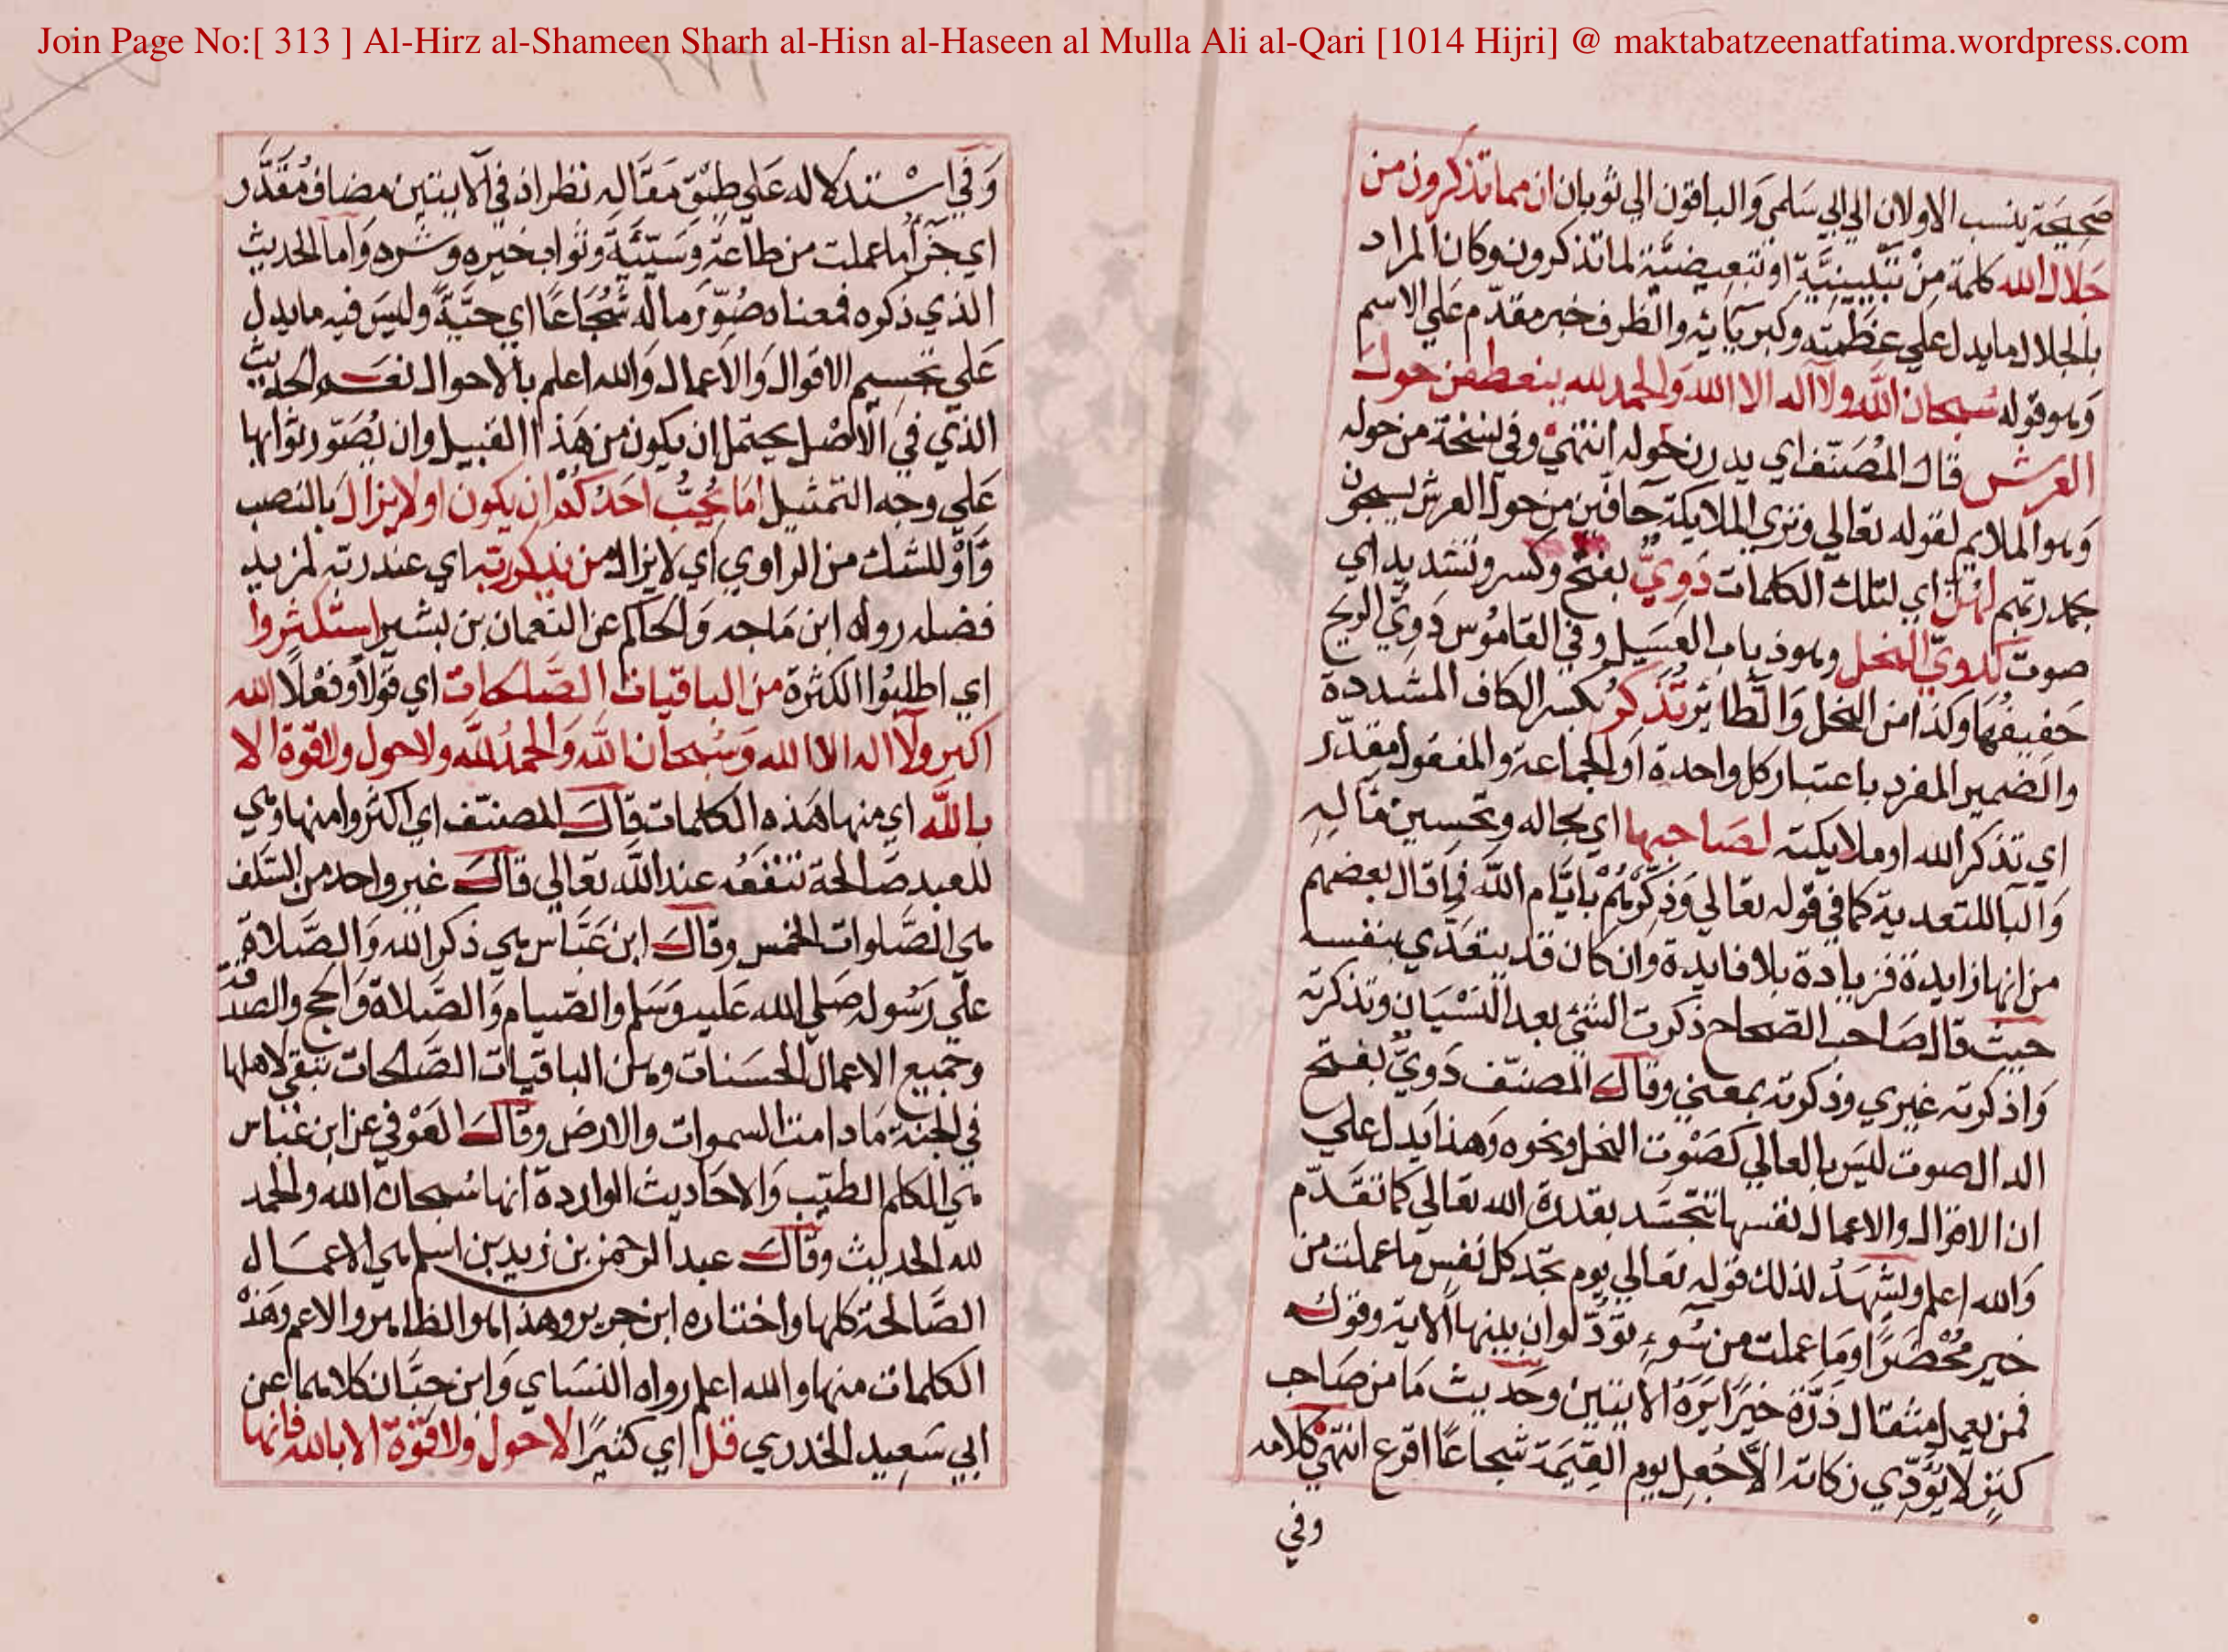 Join Page No:[ 313 ] Al-Hirz al-Shameen Sharh al-Hisn al-Haseen al Mulla Ali al-Qari [1014 Hijri] @ maktabatzeenatfatima.wordpress.com
صحيحة ينسب الاولان الي ابي سَلمي وَالباقون الي ثوبان ان مما تذكرون من
جَلال الله كلمة مِنْ تَبْيينِيَّة او تَبعيضيَّة لما تذكرون وكان المراد
بالجلال ما يدل علي عظمته وكبريائه والظرف خبر مقدّم عَلي الاسم
وَهو قوله سُبحان اللّه ولا اله الا الله وَالحمد لله ينعطفن حول
العرش قال المُصَنّف اي يدرن حوله انتهيْ وفي نسخة من حوله
وَهو الملايم لقوله تعَالي وتري الملايكة حَافّين من حول العرش يسبحون
بحمد ربّهم لهُنّ اي لتلك الكلمات دَوِيّ بفتح وكسر وتشديد اي
صوت كدويّ النحل وهو ذباب العَسَل وفي القامُوس دَوِيّ الريح
حَفيفُهَا وكذا من النحل وَالطائر تُذَكِّرُ بكسر الكاف المشددة
والضمير المفرد باعتبار كل واحدة او الجماعة والمفعول مقدّر
اي تذكر الله او ملايكته لصَاحبها اي بحاله وتحسين مقاله
وَالبا للتعدية كما في قوله تعَالي وَذكِّرْهُمْ بايَّام اللّه فما قال بعضهم
من انها زايدة فزيادة بلا فايدة وان كان قد يتعَدّي بنفسه
حيث قال صَاحب الصّحاح ذكرت الشئ بعد النّسْيَان وتذكرته
وَاذكرته غيري وذكرته بمعني وقال المصنّف دَويّ بفتح
الدال صوت ليَس بالعالي كصَوْت النحل ونحوه وَهذا يَدل علي
ان الاقوال والاعمال نفسها تتجسَّد بقدرة الله تعالي كما تقَدّم
وَالله اعلم ويَشْهَدُ لذلك قوله تعَالي يوم تجد كل نفس ما عملت من
خير مُحْضَرًا ومَا عملت من سُوءٍ تودّ لو ان بينها الاية وقوله
فمن يعمل مثقال ذَرّة خيرًا يَرَهُ الايتين وحَديث مَا من صَاحب
كنز لا يُؤدّي زكاته الّا جُعِل يوم القيمَة شجاعًا اقرع انتهيْ كلامه
وفي
وَفي اسْتدلاله عَلي طِبْق مَقَاله نظر اذ في الايتين مضاف مُقَدّر
اي جَزَآء ما عملت من طاعَة وَسَيّئة وثواب خيره وشره وَاما الحديث
الذي ذكره فمعناه صُوّرَ ماله شُجَاعًا اي حَيّة وليسَ فيه ما يدل
عَلي تجسيم الاقوال وَالاعمال وَالله اعلم بالاحوال نعَم الحديث
الذي في الاصْل يحتمل ان يكون من هَذا القبيل وان يُصَوّر ثوابها
عَلي وجه التمثيل امَا يُحِبُّ احَدُكُمْ ان يكون او لا يزال بالنصب
وَاوْ للشك من الراوي اي لا يزال من يذكر به اي عند ربّه لمزيد
فضله رواه ابن مَاجه وَالحاكم عن النعمان بن بشير استكثروا
اي اطلبُوا الكثرة من الباقيات الصَّالحات اي قولًا وفعْلًا الله
اكبر ولا اله الا الله وسُبحان اللّه وَالحمدُ للّه ولا حول ولا قوة الا
باللّه اي منها هَذه الكلمات قال المصنّف اي اكثروا منها وهي
للعبد صَالحة تنفَعُه عند اللّه تعَالي قال غير واحد من السّلف
هي الصَّلوات الخمس وقال ابن عَبَّاس هي ذكر الله وَالصَّلاة
علي رَسُوله صَلي الله عَليه وَسَلم والصّيام وَالصّلاة وَالحج والصدقة
وجَميع الاعمال الحسَنات وهن الباقيات الصَّالحات تبقي لاهلها
في الجنة مَا دامت السموات والارض وقال العَوْفي عن ابن عباس
هي الكلم الطيّب وَالاحَاديث الواردة انها سُبحان الله والحمد
لله الحديث وقال عبد الرحمن بن زيد بن اسلم هي الاعمَال
الصَّالحة كلها واختاره ابن جرير وهذا هو الظاهر والاعم وَهَذه
الكلمات منها والله اعلم رواه النسَاي وَابن حِبّان كلاهما عن
ابي سَعيد الخدري قل اي كثيرًا لا حول ولا قوّة الا بالله فانها